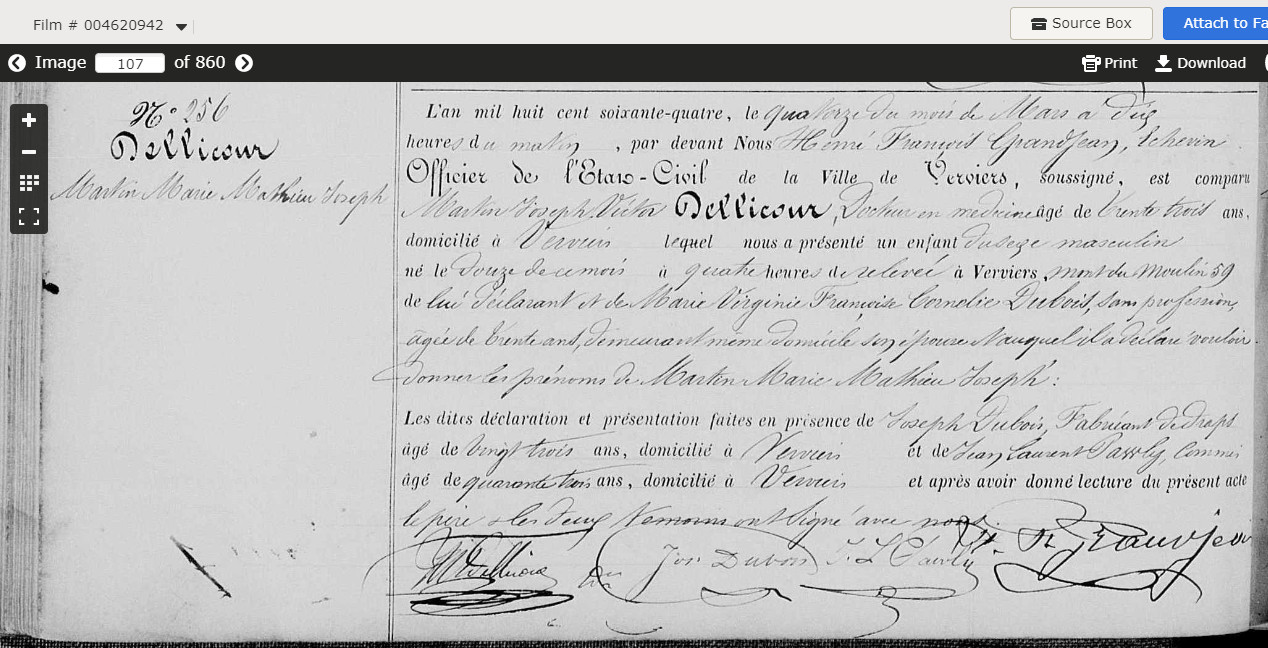 Film # 004620942
Source Box
Attach to Fa
Image 107 of 860
Print
Download
N° 256
Dellicour
Martin Marie Mathieu Joseph
L'an mil huit cent soixante-quatre, le quatorze du mois de Mars à dix
heures du matin, par devant Nous Henri François Grandjean, Echevin
Officier de l'Etat-Civil de la Ville de Verviers, soussigné, est comparu
Martin Joseph Victor Dellicour, Docteur en medecine âgé de trente trois ans,
domicilié à Verviers lequel nous a présenté un enfant du sexe masculin
né le douze de ce mois à quatre heures de relevée à Verviers, mont du Moulin 59
de lui déclarant et de Marie Virginie Françoise Cornelie Dubois, sans profession,
âgée de trente ans, demeurant même domicile son épouse & auquel il a déclaré vouloir
donner les prénoms de Martin Marie Mathieu Joseph :
Les dites déclaration et présentation faites en présence de Joseph Dubois, Fabricant de draps
âgé de vingt trois ans, domicilié à Verviers et de Jean Laurent Pauly, Commis
âgé de quarante trois ans, domicilié à Verviers et après avoir donné lecture du présent acte
le père & les deux témoins ont signé avec nous.
Jos Dubois J. L. Pauly